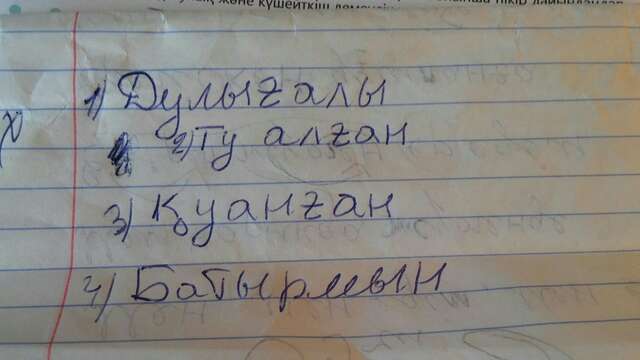 және күшейткіш
1) Дулығалы
2) Ту алған
3) Қуанған
4) Батырмын